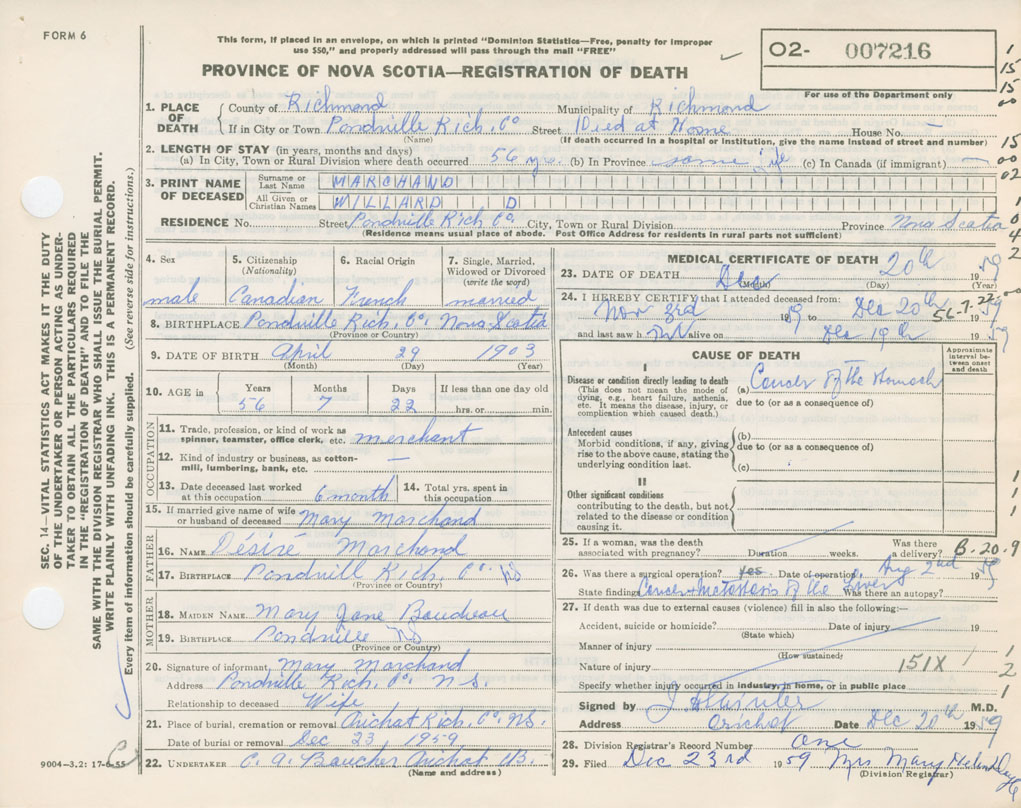 FORM 6
This form, if placed in an envelope, on which is printed "Dominion Statistics—Free, penalty for improper
use $50," and properly addressed will pass through the mail "FREE"
O2- 007216
For use of the Department only
PROVINCE OF NOVA SCOTIA—REGISTRATION OF DEATH
SEC. 14—VITAL STATISTICS ACT MAKES IT THE DUTY
OF THE UNDERTAKER OR PERSON ACTING AS UNDER-
TAKER TO OBTAIN ALL THE PARTICULARS REQUIRED
IN THE "REGISTRATION OF DEATH" AND TO FILE THE
SAME WITH THE DIVISION REGISTRAR WHO SHALL ISSUE THE BURIAL PERMIT.
WRITE PLAINLY WITH UNFADING INK. THIS IS A PERMANENT RECORD.
Every item of information should be carefully supplied. (See reverse side for instructions.)
1. PLACE OF DEATH County of Richmond Municipality of Richmond
If in City or Town Pondville Rich. Co Street Died at Home House No. —
(Name) (If death occurred in a hospital or institution, give the name instead of street and number)
2. LENGTH OF STAY (in years, months and days)
(a) In City, Town or Rural Division where death occurred 56 yrs. (b) In Province same (c) In Canada (if immigrant) —
3. PRINT NAME OF DECEASED
Surname or Last Name MARCHAND
All Given or Christian Names WILLARD D
RESIDENCE No. Street Pondville Rich Co. City, Town or Rural Division Province Nova Scotia
(Residence means usual place of abode. Post Office Address for residents in rural parts not sufficient)
4. Sex male
5. Citizenship (Nationality) Canadian
6. Racial Origin French
7. Single, Married, Widowed or Divorced (write the word) married
8. BIRTHPLACE Pondville Rich. Co. Nova Scotia
(Province or Country)
9. DATE OF BIRTH April 29 1903
(Month) (Day) (Year)
10. AGE in Years 56 Months 7 Days 22 If less than one day old hrs. or min.
OCCUPATION
11. Trade, profession, or kind of work as spinner, teamster, office clerk, etc. merchant
12. Kind of industry or business, as cotton-mill, lumbering, bank, etc. —
13. Date deceased last worked at this occupation 6 month
14. Total yrs. spent in this occupation
15. If married give name of wife or husband of deceased Mary Marchand
FATHER
16. NAME Désiré Marchand
17. BIRTHPLACE Pondville Rich. Co. NS
(Province or Country)
MOTHER
18. MAIDEN NAME Mary Jane Boudeau
19. BIRTHPLACE Pondville NS
(Province or Country)
20. Signature of informant Mary Marchand
Address Pondville Rich. Co. N.S.
Relationship to deceased Wife
21. Place of burial, cremation or removal Arichat Rich. Co. NS.
Date of burial or removal Dec 23 1959
22. UNDERTAKER C. A. Boucher Arichat
(Name and address)
9004—3.2: 17-6-55
MEDICAL CERTIFICATE OF DEATH
23. DATE OF DEATH Dec 20th 1959
(Month) (Day) (Year)
24. I HEREBY CERTIFY that I attended deceased from:
Nov 3rd 1959 to Dec 20th 1959
56-7-22
and last saw him alive on Dec 19th 1959
CAUSE OF DEATH
Approximate interval between onset and death
I
Disease or condition directly leading to death
(This does not mean the mode of dying, e.g., heart failure, asthenia, etc. It means the disease, injury, or complication which caused death.)
(a) Cancer of the Stomach
due to (or as a consequence of)
Antecedent causes
Morbid conditions, if any, giving rise to the above cause, stating the underlying condition last.
(b)
due to (or as a consequence of)
(c)
II
Other significant conditions
contributing to the death, but not related to the disease or condition causing it.
25. If a woman, was the death associated with pregnancy? Duration weeks. Was there a delivery? B-20-9
26. Was there a surgical operation? yes Date of operation Aug 2nd 1959
State findings Cancer + metastasis of the liver Was there an autopsy?
27. If death was due to external causes (violence) fill in also the following:—
Accident, suicide or homicide? Date of injury 19
(State which)
Manner of injury
(How sustained)
Nature of injury 151X
Specify whether injury occurred in industry, in home, or in public place
Signed by M.D.
Address Arichat Date Dec 20th 1959
28. Division Registrar's Record Number One
29. Filed Dec 23rd 1959 Mrs Mary Helen
(Division Registrar)
1
15
15
00
15
00
02
1
0
4
2
00
1
1
1
2
1